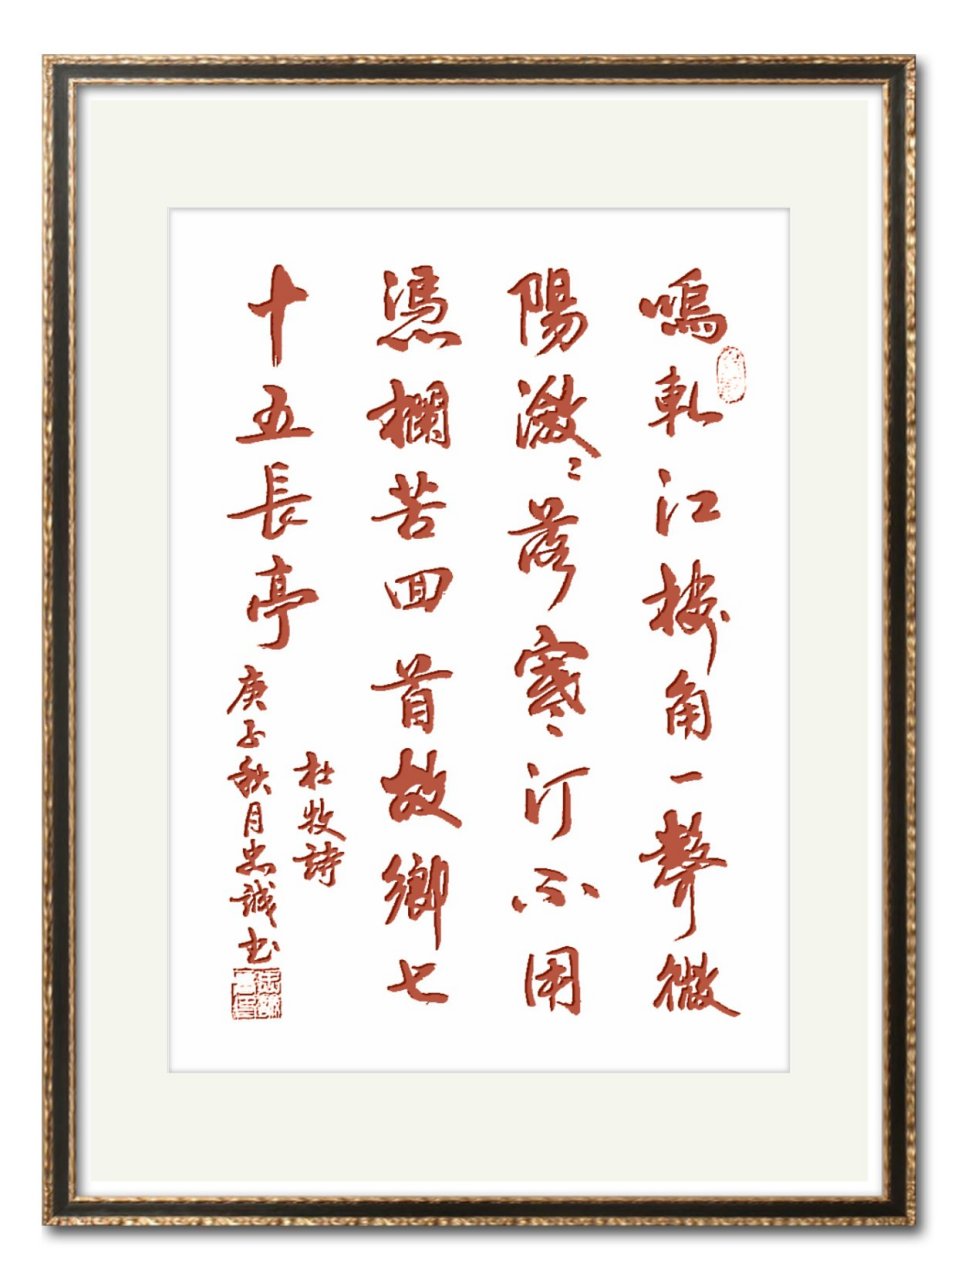 嗚軋江樓角一聲微
陽瀲〻落寒汀不用
憑欄苦回首故鄉七
十五長亭
杜牧詩
庚子秋月忠誠书